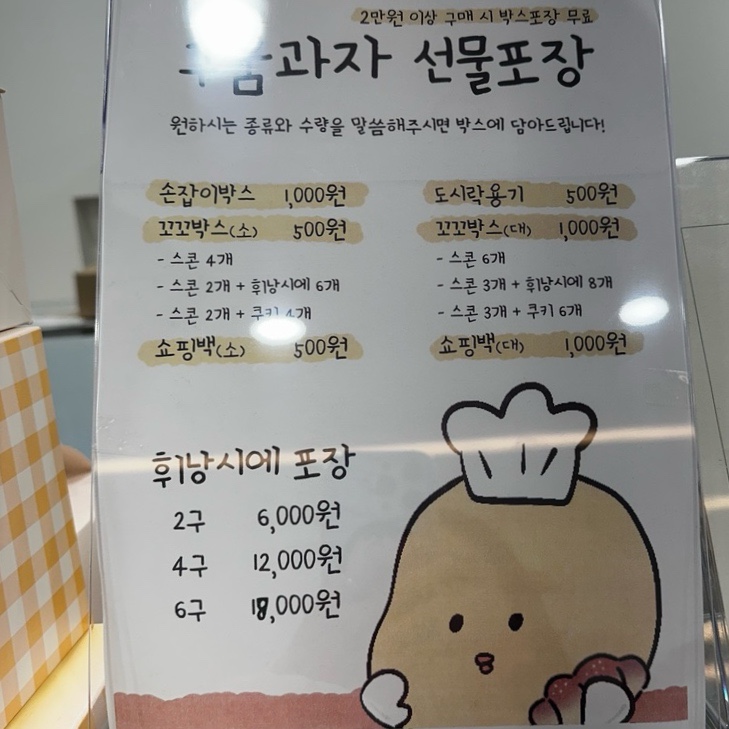 2만원 이상 구매 시 박스포장 무료
과자 선물포장
원하시는 종류와 수량을 말씀해주시면 박스에 담아드립니다!
손잡이박스 1,000원
꼬꼬박스(소) 500원
- 스콘 4개
- 스콘 2개 + 휘낭시에 6개
- 스콘 2개 + 쿠키 4개
쇼핑백(소) 500원
도시락용기 500원
꼬꼬박스(대) 1,000원
- 스콘 6개
- 스콘 3개 + 휘낭시에 8개
- 스콘 3개 + 쿠키 6개
쇼핑백(대) 1,000원
휘낭시에 포장
2구 6,000원
4구 12,000원
6구 18,000원